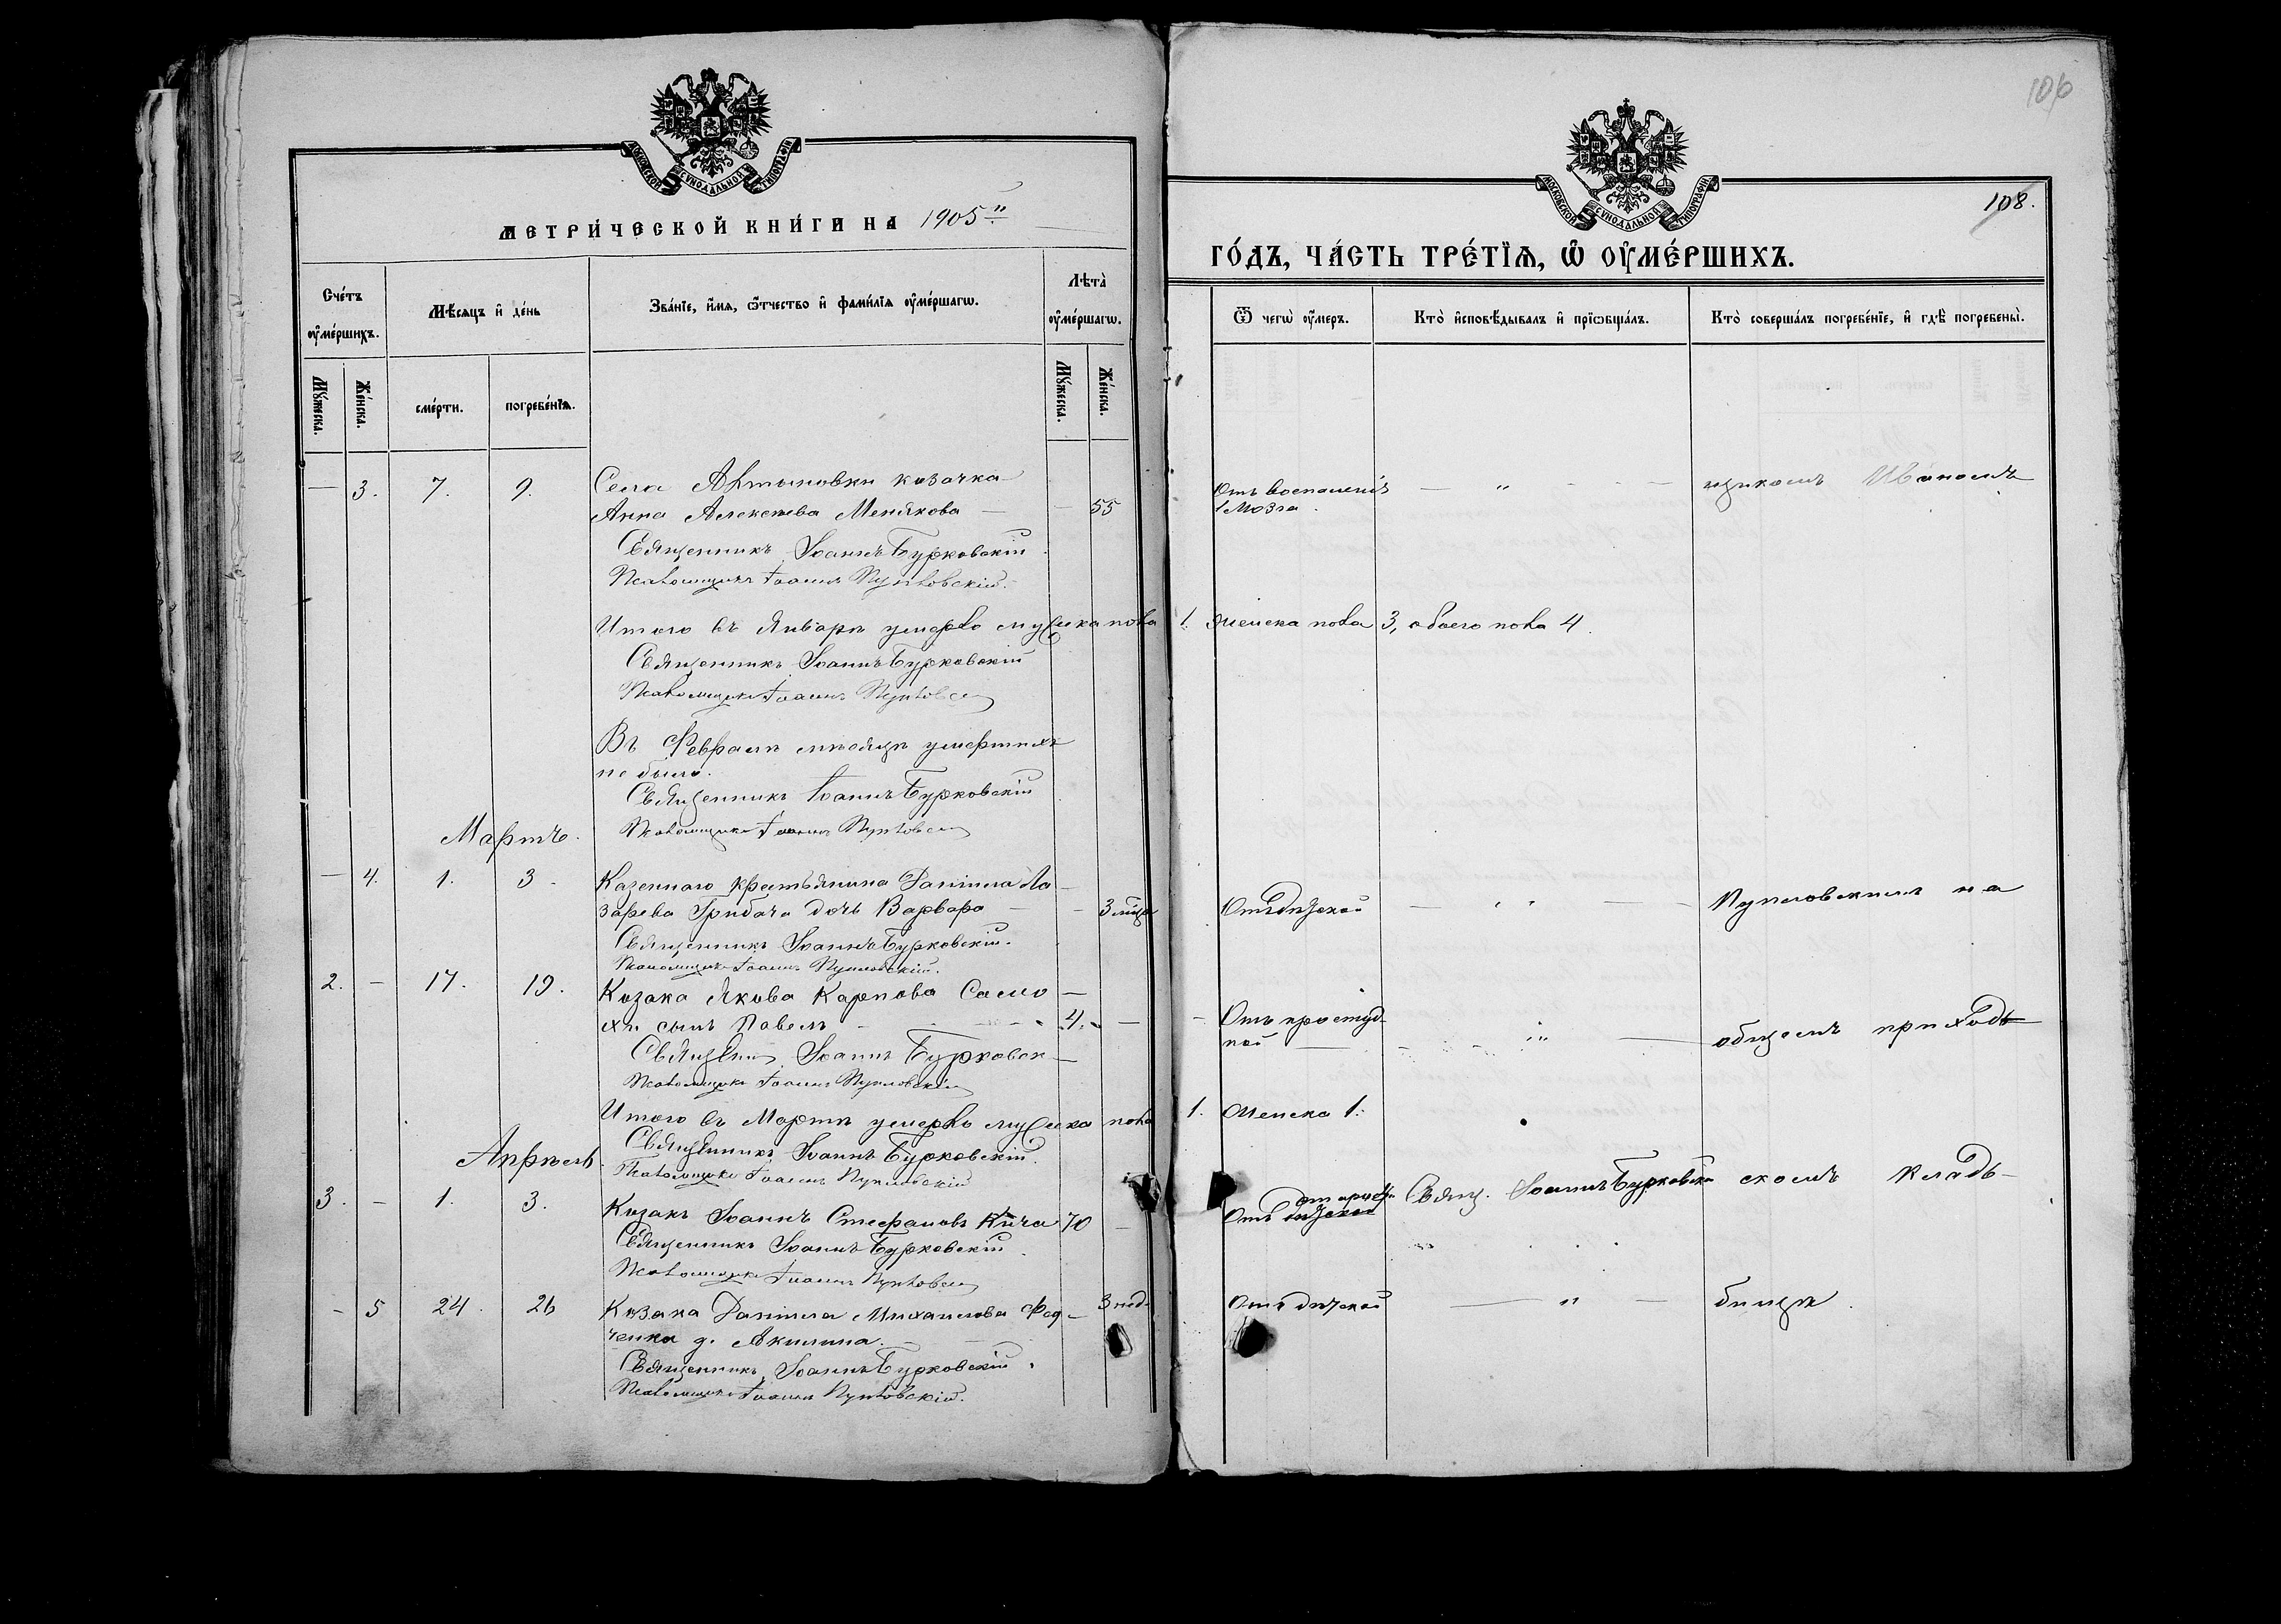 106
МОСКОВСКОЙ СѴНОДАЛЬНОЙ ТИПОГРАФІИ
МЕТРИ́ЧЕСКОЙ КНИ́ГИ НА 1905
Сче́тъ оу҆ме́ршихъ.
Мѣ́сяцъ и҆ де́нь
Зва́нїе, и҆́мя, ѻ҆́тчество и҆ фами́лїя оу҆ме́ршагѡ.
Лѣта̀ оу҆ме́ршагѡ.
Мꙋ́жеска.
Же́нска.
сме́рти.
погребе́нїя.
Мꙋ́жеска.
Же́нска.
— 3. 7. 9. Села Автыновки козачка
Анна Алексѣева Менякова — 55
Священникъ Іоаннъ Бурковскій
Псаломщикъ Іоаннъ Пупловскій.
Итого въ Январѣ умерло мужеска пола
Священникъ Іоаннъ Бурковскій
Псаломщикъ Іоаннъ
Въ Февралѣ мѣсяцѣ умершихъ
не было.
Священникъ Іоаннъ Бурковскій
Псаломщикъ Іоаннъ
Мартъ.
— 4. 1. 3. Казеннаго крестьянина Даніила Ла
зарева Грибача дочь Варвара — 3 мѣся
Священникъ Іоаннъ Бурковскій.
Псаломщикъ Іоаннъ Пупловскій.
2. — 17. 19. Козака Якова Карпова Само
хи сынъ Павелъ 4. —
Священ Іоаннъ Бурковск
Псаломщикъ Іоаннъ Пупловскій
Итого въ Мартѣ умерло мужеска пола
Священникъ Іоаннъ Бурковскій
Апрѣль.
Псаломщикъ Іоаннъ Пупловскій
3. — 1. 3. Козакъ Іоаннъ Стефановъ Кича 70 —
Священникъ Іоаннъ Бурковскій
Псаломщикъ Іоаннъ
— 5 24. 26 Козака Даніила Михаилова Фед — 3 нед.
ченка д. Акилина.
Священникъ Іоаннъ Бурковскій.
Псаломщикъ Іоаннъ Пупловскій.
МОСКОВСКОЙ СѴНОДАЛЬНОЙ ТИПОГРАФІИ
108.
ГО́ДЪ, ЧА́СТЬ ТРЕ́ТЇѦ, Ѡ҆ ОУ҆МЕ́РШИХЪ.
Ѿ чегѡ̀ оу҆́меръ.
Кто̀ и҆сповѣ́дывалъ и҆ прїѡбща́лъ.
Кто̀ соверша́лъ погребе́нїе, и҆ гдѣ̀ погребены̀.
Отъ воспаленія — " — щикомъ Иваномъ
мозга.
1. женска пола 3, обоего пола 4.
Отъ дѣтской — " — Пупловскимъ на
Отъ простуд
ной — " — общемъ приход
1. Женска 1.
Отъ дѣтской Свящ. Іоаннъ Бурковскі скомъ кладь-
Отъ дѣтской — " — бищѣ.